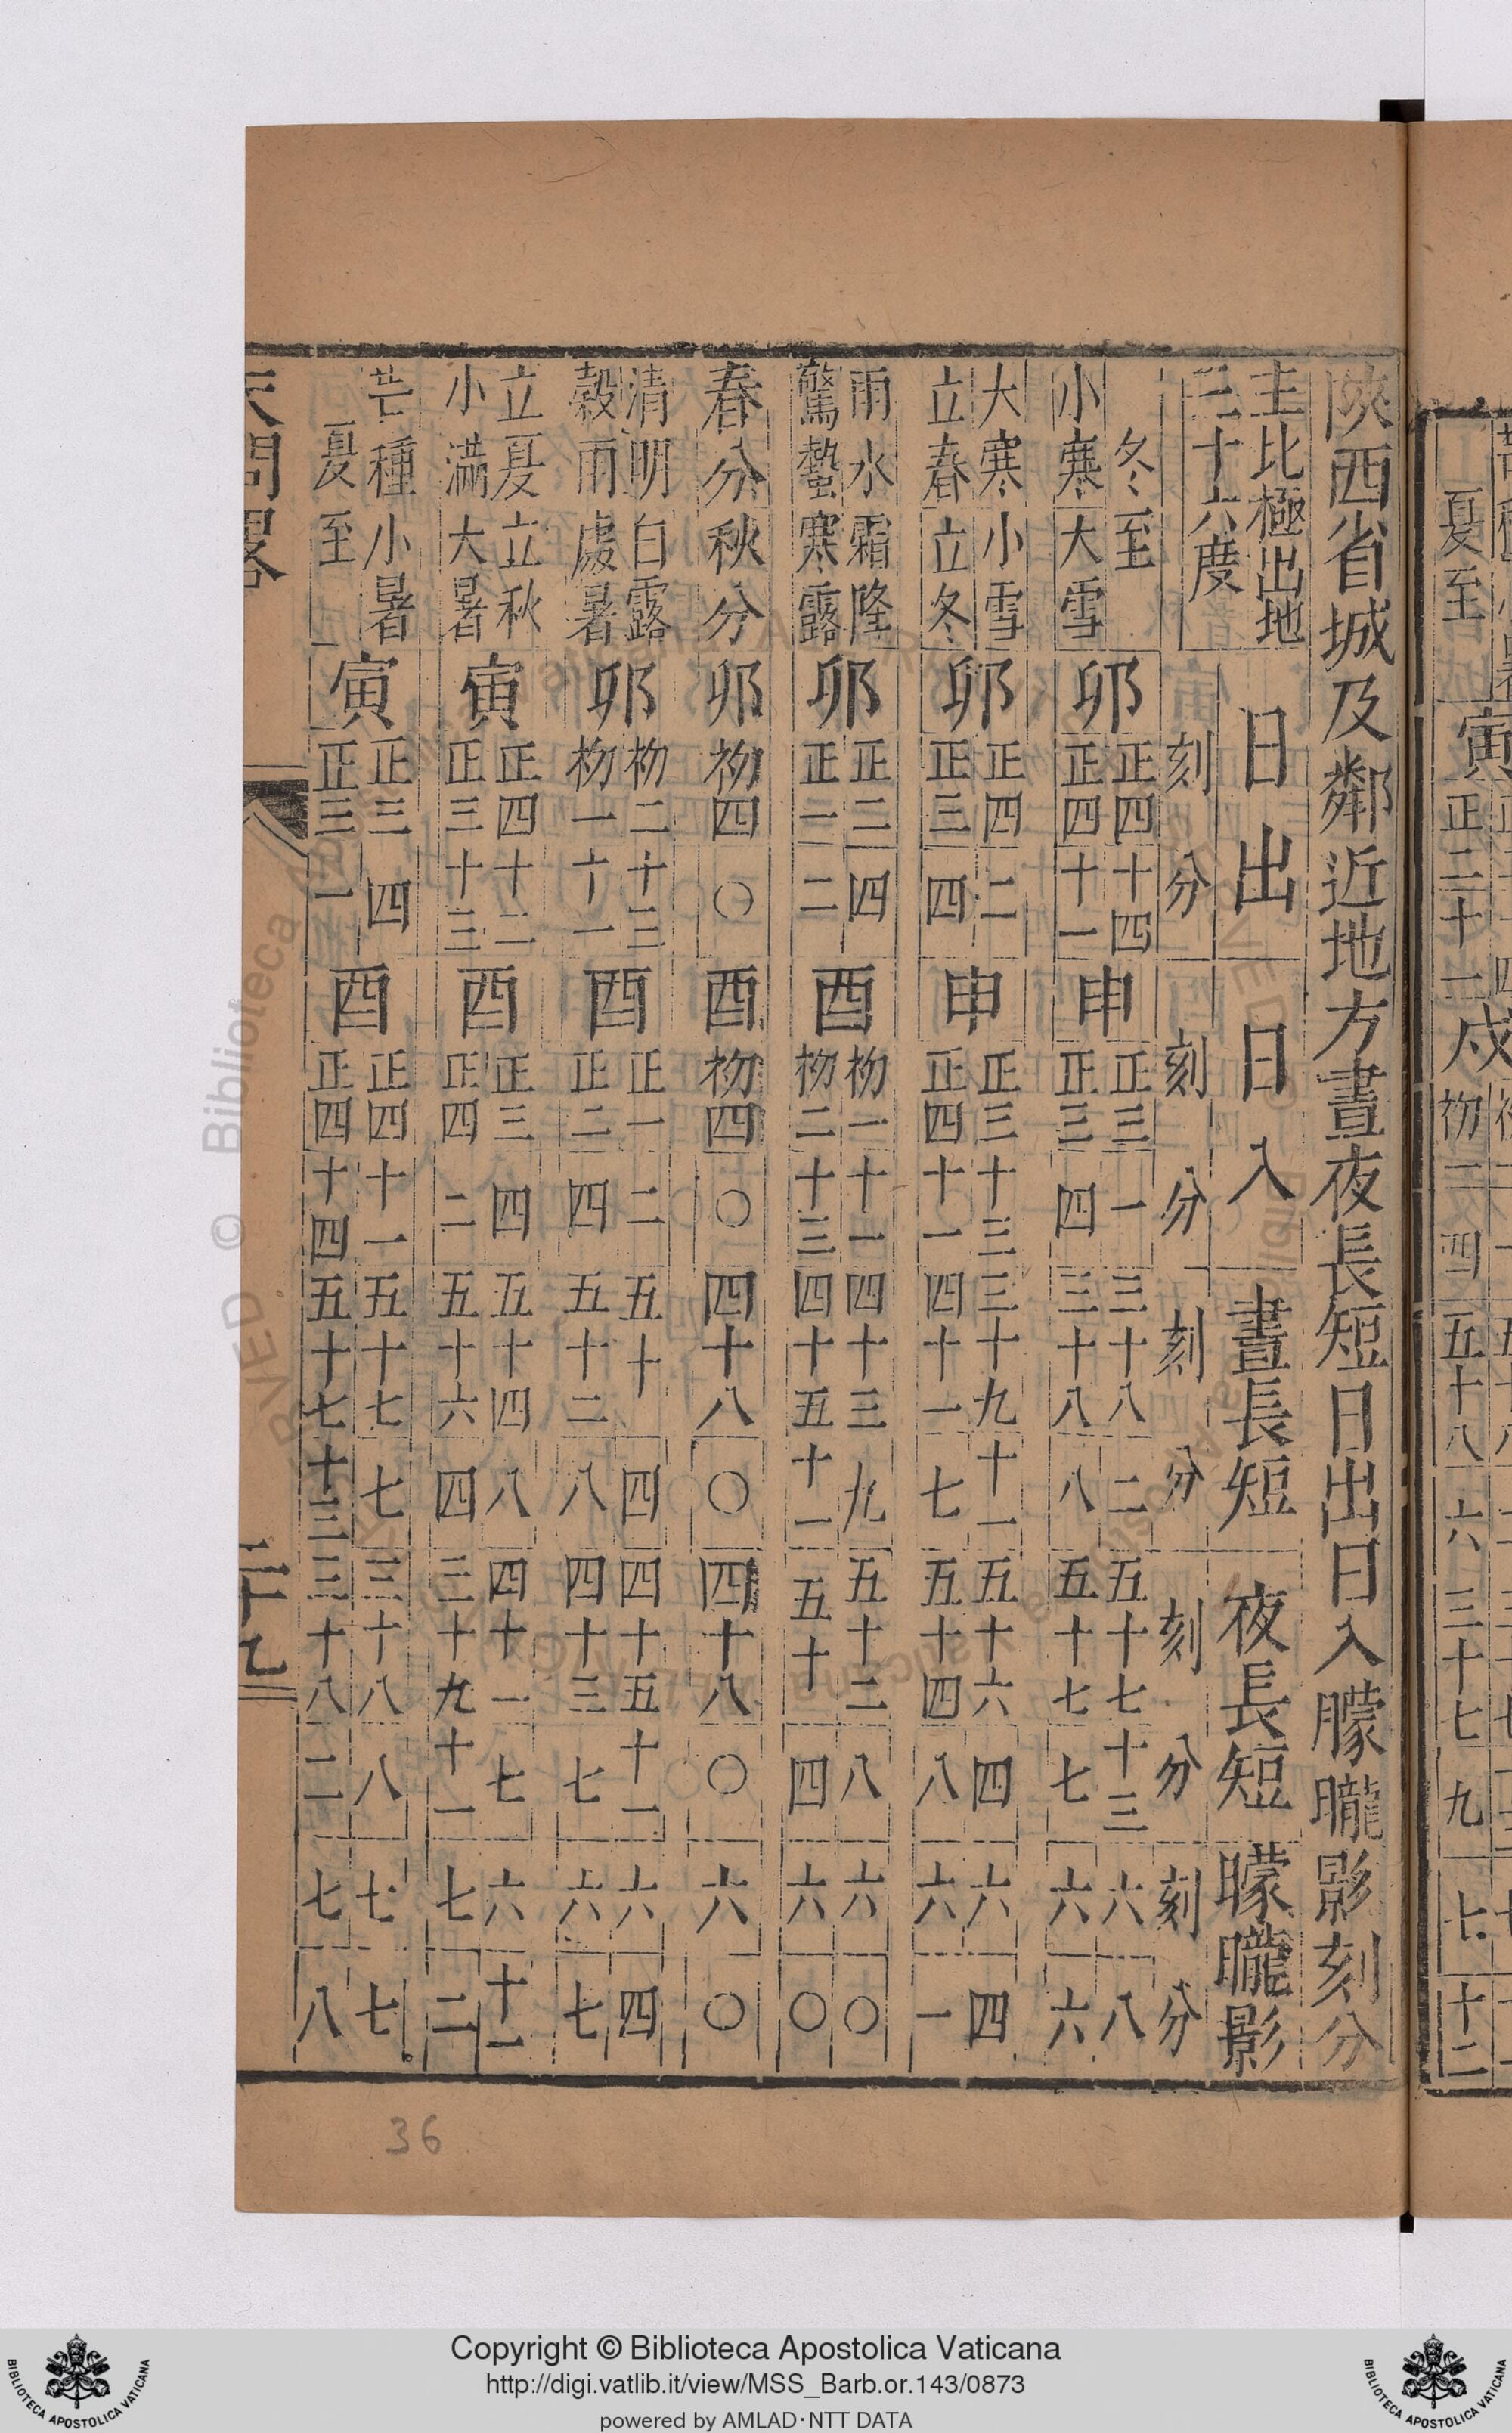 夏至寅正二十一戌初二四五十八六三十七九七十二
陝西省城及鄰近地方晝夜長短日出日入朦朧影刻分
主北極出地
三十六度
日出 日入 晝長短 夜長短 朦朧影
刻分 刻分 刻分 刻分 刻分
冬至 卯 正四 十四 申 正三 一 三十八 二 五十七 十三 六 八
小寒大雪 正四 十一 正三 四 三十八 八 五十七 七 六 六
大寒小雪 卯 正四 二 申 正三 十三 三十九 十一 五十六 四 六 四
立春立冬 正三 四 正四 十一 四十一 七 五十四 八 六 一
雨水霜降 卯 正二 四 酉 初一 十一 四十三 九 五十二 八 六 〇
驚蟄寒露 正二 二 初二 十三 四十五 十一 五十 四 六 〇
春分秋分 卯 初四 〇 酉 初四 〇 四十八 〇 四十八 〇 六 〇
清明白露 卯 初二 十三 酉 正一 二 五十 四 四十五 十一 六 四
穀雨處暑 初一 十一 正二 四 五十二 八 四十三 七 六 七
立夏立秋 寅 正四 十二 酉 正三 四 五十四 八 四十一 七 六 十一
小滿大暑 正三 十三 正四 二 五十六 四 三十九 十一 七 二
芒種小暑 寅 正三 四 酉 正四 十一 五十七 七 三十八 八 七 七
夏至 正三 一 正四 十四 五十七 十三 三十八 二 七 八
天問略 二十九
36
Copyright © Biblioteca Apostolica Vaticana
http://digi.vatlib.it/view/MSS_Barb.or.143/0873
powered by AMLAD·NTT DATA
BIBLIOTECA APOSTOLICA VATICANA
BIBLIOTECA APOSTOLICA VATICANA